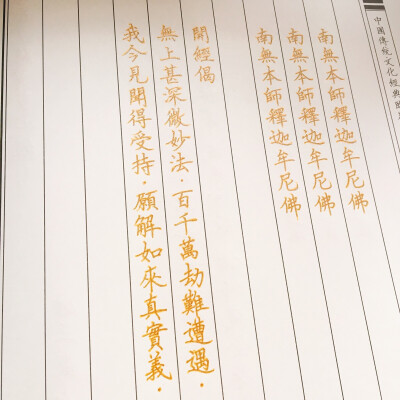 中國傳統文化經典臨
南無本師釋迦牟尼佛
南無本師釋迦牟尼佛
南無本師釋迦牟尼佛
開經偈
無上甚深微妙法．百千萬劫難遭遇．
我今見聞得受持．願解如來真實義．